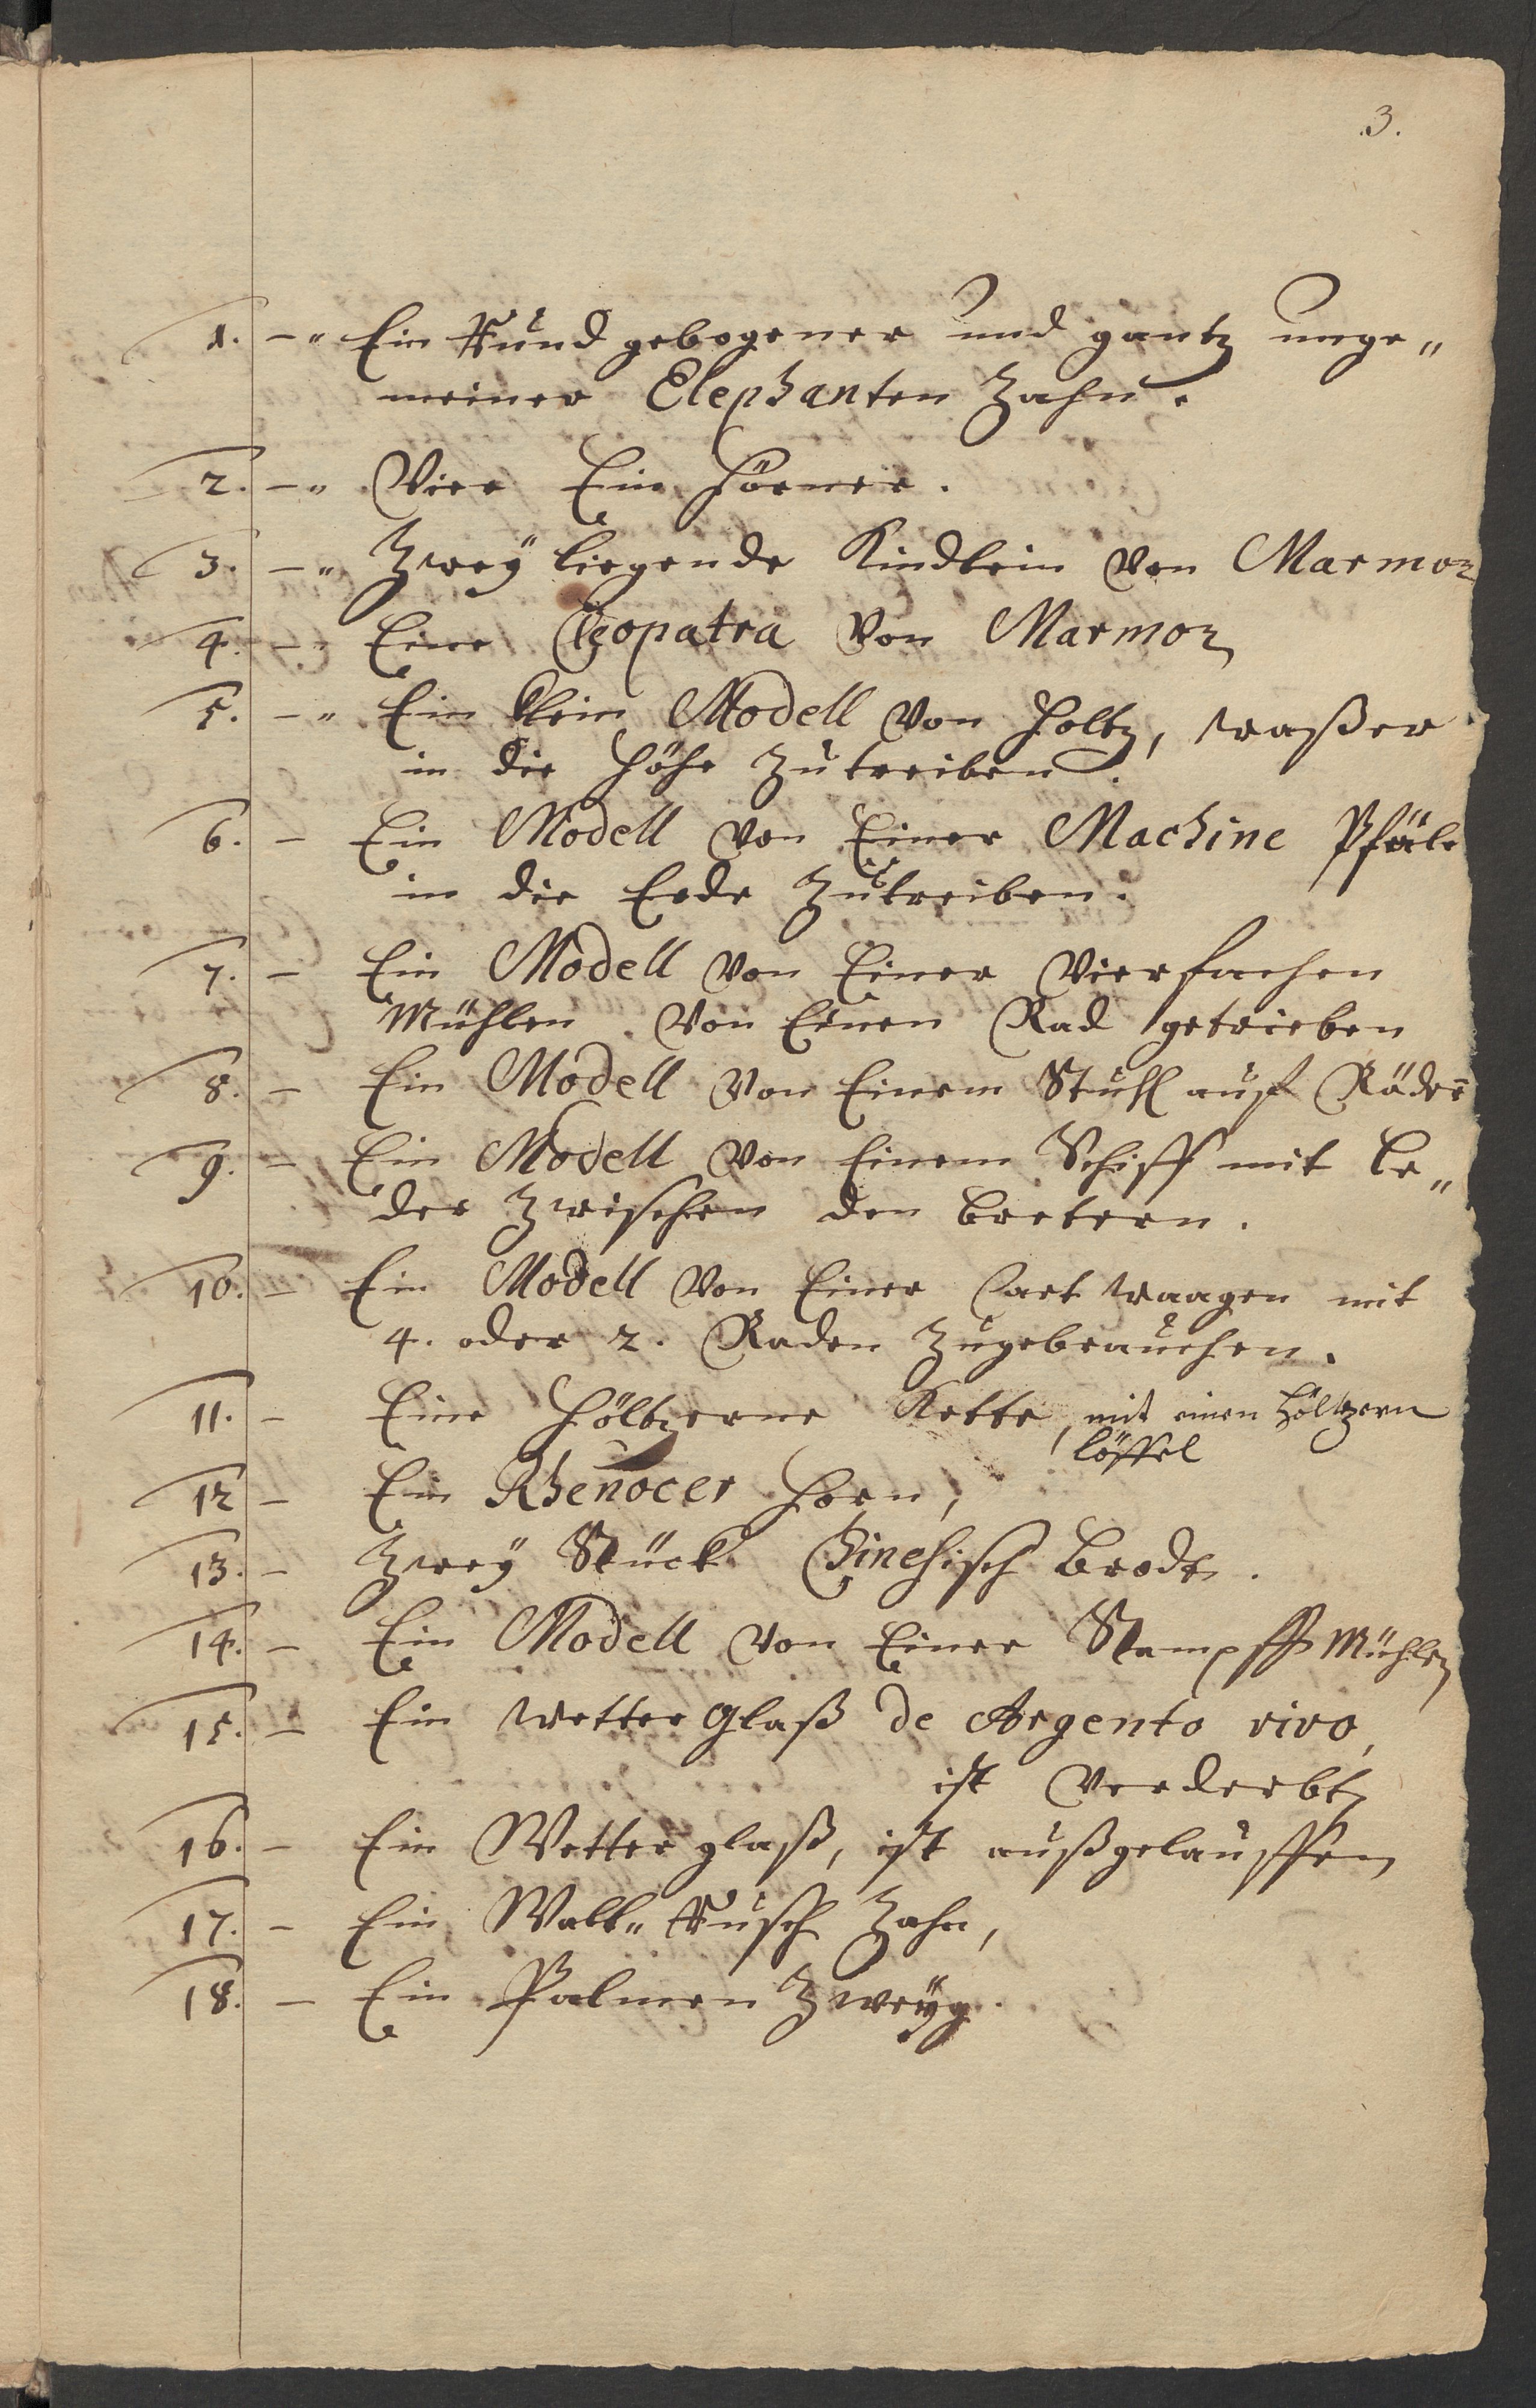 .3.
1. -" Ein Rund gebogener und gantz unge„
meiner Elephanten Zahn.
2. -" Vier Ein Hörner.
3. -" Zweÿ liegende Kindlein von Marmor
4. -" Eine Cleopatra von Marmor
5. -" Ein klein Modell von Holtz, waßer
in die Höhe zu treiben.
6. - Ein Modell von Einer Machine Pfäle
in die Erde zu treiben.
7. - Ein Modell von Einer vierfachen
Mühlen von Einen Rad getrieben
8. - Ein Modell von Einem Stuhl auf Räder
9. - Ein Modell von Einem Schiff mit Le„
der zwischen den bretern.
10. - Ein Modell von Einer Cart waagen mit
4. oder 2. Raden zugebrauchen.
11. - Eine Höltzerne Kette, mit einen höltzern
löffel
12 - Ein Rhenocer Horn,
13. - Zweÿ Stück Chinesisch Brodt.
14. - Ein Modell von Einer Stampff Mühlen
15. - Ein wetter Glaß de Argento vivo,
ist verderbt
16. - Ein Wetter glaß, ist außgelauffen
17. - Ein Wall„ Rusch Zahn,
18. - Ein Palmen Zweÿg.